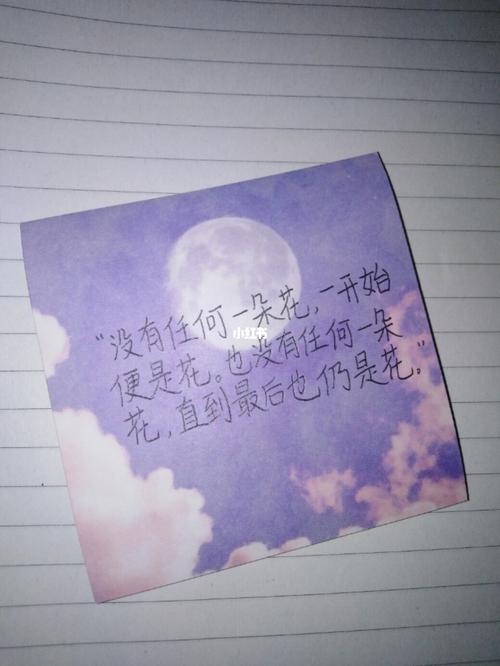 “没有任何一朵花,一开始
便是花。也没有任何一朵
花,直到最后也仍是花。”
小红书